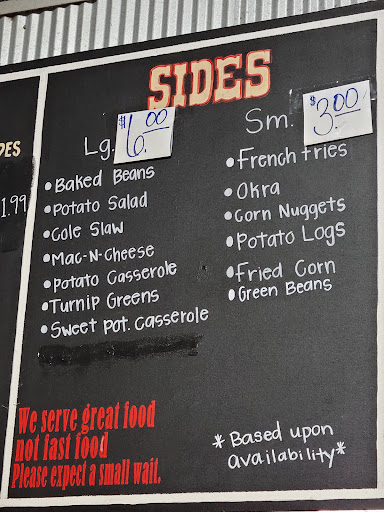 SIDES
Lg. $6.00
Sm. $3.00
•Baked Beans
•Potato Salad
•Cole Slaw
•Mac-N-Cheese
•Potato Casserole
•Turnip Greens
•Sweet Pot. Casserole
•French fries
•Okra
•Corn Nuggets
•Potato Logs
•Fried Corn
•Green Beans
We serve great food
not fast food
Please expect a small wait.
*Based upon
availability*
PES
1.99